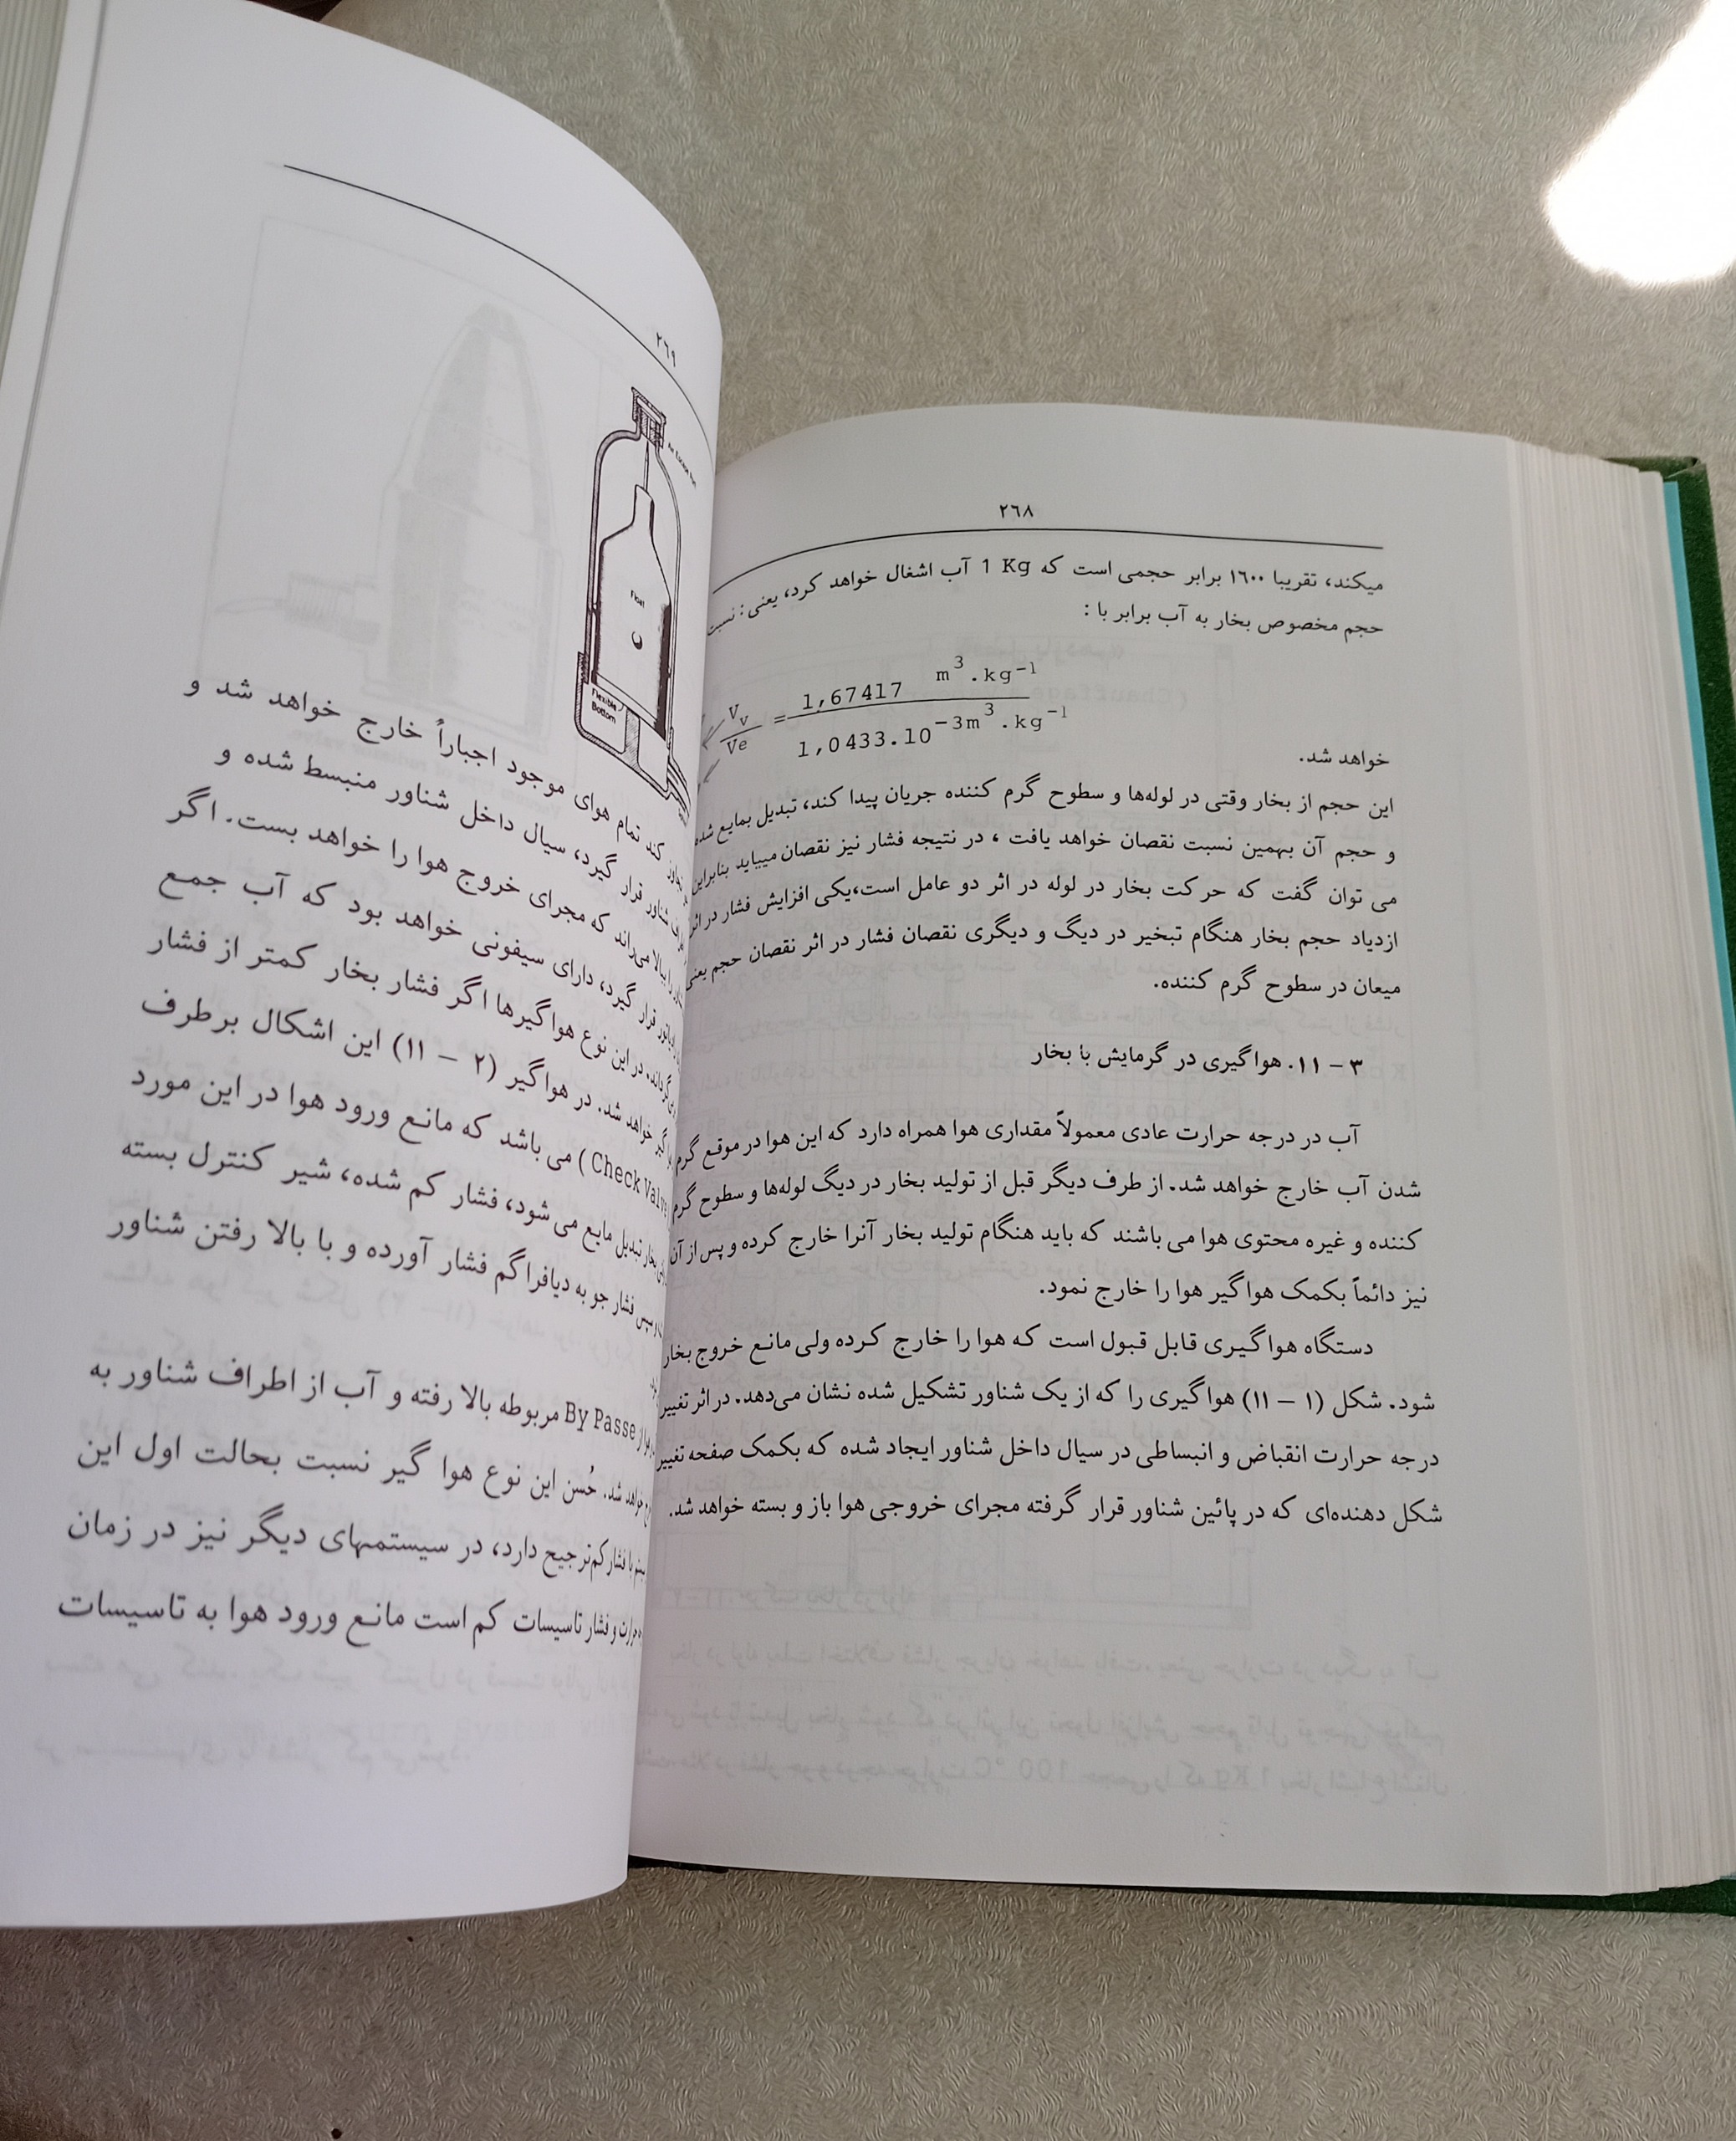 ۲۶۸
میکند، تقریبا ۱۶۰۰ برابر حجمی است که 1 Kg آب اشغال خواهد کرد، یعنی : نسبت
حجم مخصوص بخار به آب برابر با :
Vv / Ve = 1,67417 m³.kg⁻¹ / 1,0433.10⁻³m³.kg⁻¹
خواهد شد.
این حجم از بخار وقتی در لوله‌ها و سطوح گرم کننده جریان پیدا کند، تبدیل بمایع شده
و حجم آن بهمین نسبت نقصان خواهد یافت ، در نتیجه فشار نیز نقصان مییابد بنابراین
می توان گفت که حرکت بخار در لوله در اثر دو عامل است،یکی افزایش فشار در اثر
ازدیاد حجم بخار هنگام تبخیر در دیگ و دیگری نقصان فشار در اثر نقصان حجم یعنی
میعان در سطوح گرم کننده.
۳ – ۱۱. هواگیری در گرمایش با بخار
آب در درجه حرارت عادی معمولاً مقداری هوا همراه دارد که این هوا در موقع گرم
شدن آب خارج خواهد شد. از طرف دیگر قبل از تولید بخار در دیگ لوله‌ها و سطوح گرم
کننده و غیره محتوی هوا می باشند که باید هنگام تولید بخار آنرا خارج کرده و پس از آن
نیز دائماً بکمک هواگیر هوا را خارج نمود.
دستگاه هواگیری قابل قبول است که هوا را خارج کرده ولی مانع خروج بخار
شود. شکل (۱ – ۱۱) هواگیری را که از یک شناور تشکیل شده نشان می‌دهد. در اثر تغییر
درجه حرارت انقباض و انبساطی در سیال داخل شناور ایجاد شده که بکمک صفحه تغییر
شکل دهنده‌ای که در پائین شناور قرار گرفته مجرای خروجی هوا باز و بسته خواهد شد.
۲۶۹
Float
Flexible
Bottom
کند تمام هوای موجود اجباراً خارج خواهد شد و
شناور قرار گیرد، سیال داخل شناور منبسط شده و
ببالا می‌راند که مجرای خروج هوا را خواهد بست. اگر
قرار گیرد، دارای سیفونی خواهد بود که آب جمع
در این نوع هواگیرها اگر فشار بخار کمتر از فشار
خواهد شد. در هواگیر (۲ – ۱۱) این اشکال برطرف
(Check Valve) می باشد که مانع ورود هوا در این مورد
بخار تبدیل مایع می شود، فشار کم شده، شیر کنترل بسته
سپس فشار جو به دیافراگم فشار آورده و با بالا رفتن شناور
By Passe مربوطه بالا رفته و آب از اطراف شناور به
خواهد شد. حُسن این نوع هوا گیر نسبت بحالت اول این
با فشار کم ترجیح دارد، در سیستمهای دیگر نیز در زمان
حرارت و فشار تاسیسات کم است مانع ورود هوا به تاسیسات